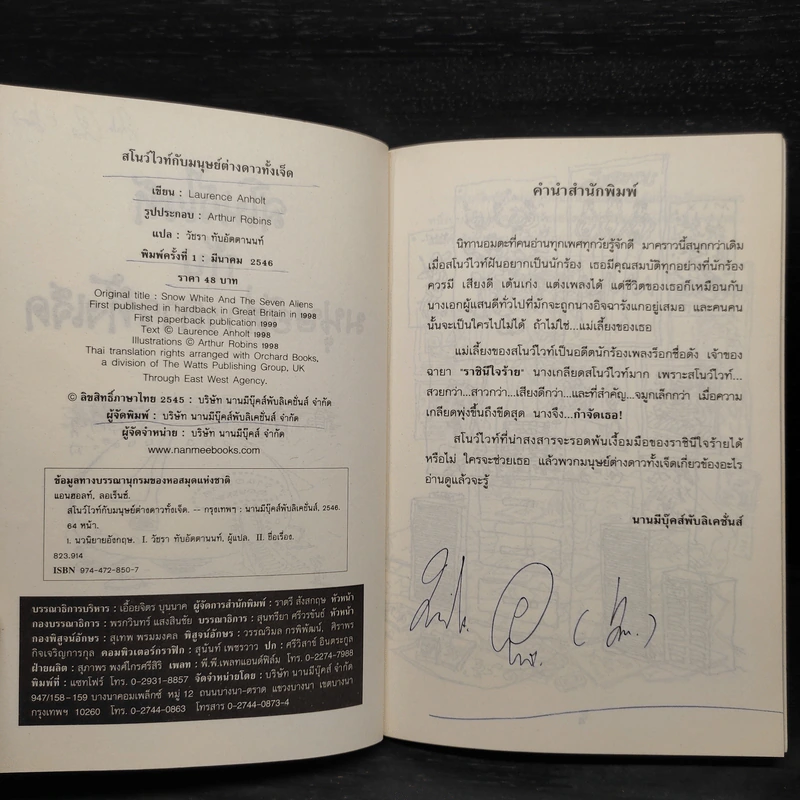 สโนว์ไวท์กับมนุษย์ต่างดาวทั้งเจ็ด
เขียน : Laurence Anholt
รูปประกอบ : Arthur Robins
แปล : วัชรา ทับอัตตานนท์
พิมพ์ครั้งที่ 1 : มีนาคม 2546
ราคา 48 บาท
Original title : Snow White And The Seven Aliens
First published in hardback in Great Britain in 1998
First paperback publication 1999
Text © Laurence Anholt 1998
Illustrations © Arthur Robins 1998
Thai translation rights arranged with Orchard Books,
a division of The Watts Publishing Group, UK
Through East West Agency.
© ลิขสิทธิ์ภาษาไทย 2545 : บริษัท นานมีบุ๊คส์พับลิเคชั่นส์ จำกัด
ผู้จัดพิมพ์ : บริษัท นานมีบุ๊คส์พับลิเคชั่นส์ จำกัด
ผู้จัดจำหน่าย : บริษัท นานมีบุ๊คส์ จำกัด
www.nanmeebooks.com
ข้อมูลทางบรรณานุกรมของหอสมุดแห่งชาติ
แอนฮอลท์, ลอเร็นซ์.
สโนว์ไวท์กับมนุษย์ต่างดาวทั้งเจ็ด. — กรุงเทพฯ : นานมีบุ๊คส์พับลิเคชั่นส์, 2546.
64 หน้า.
1. นวนิยายอังกฤษ. I. วัชรา ทับอัตตานนท์, ผู้แปล. II. ชื่อเรื่อง.
823.914
ISBN 974-472-850-7
บรรณาธิการบริหาร : เอื้อยจิตร บุนนาค ผู้จัดการสำนักพิมพ์ : ราตรี สังสกฤษ หัวหน้า
กองบรรณาธิการ : พรกวินทร์ แสงสินชัย บรรณาธิการ : สุนทรียา ศรีวรขันธ์ หัวหน้า
กองพิสูจน์อักษร : สุเทพ พรมมงคล พิสูจน์อักษร : วรรณวิมล กรพิพัฒน์, ศิราพร
กิจเจริญการกุล คอมพิวเตอร์กราฟิก : สุนันท์ เพชรวาว ปก : ศรีวิสาข์ อินตระกูล
ฝ่ายผลิต : สุภาพร พงศ์ไกรศรีสิริ เพลท : พี.พี.เพลทแอนด์ฟิล์ม โทร. 0-2274-7988
พิมพ์ที่ : แซทโฟร์ โทร. 0-2931-8857 จัดจำหน่ายโดย : บริษัท นานมีบุ๊คส์ จำกัด
947/158-159 บางนาคอมเพล็กซ์ หมู่ 12 ถนนบางนา-ตราด แขวงบางนา เขตบางนา
กรุงเทพฯ 10260 โทร. 0-2744-0863 โทรสาร 0-2744-0873-4
คำนำสำนักพิมพ์
นิทานอมตะที่คนอ่านทุกเพศทุกวัยรู้จักดี มาคราวนี้สนุกกว่าเดิม
เมื่อสโนว์ไวท์ฝันอยากเป็นนักร้อง เธอมีคุณสมบัติทุกอย่างที่นักร้อง
ควรมี เสียงดี เต้นเก่ง แต่งเพลงได้ แต่ชีวิตของเธอก็เหมือนกับ
นางเอกผู้แสนดีทั่วไปที่มักจะถูกนางอิจฉารังแกอยู่เสมอ และคนคน
นั้นจะเป็นใครไปไม่ได้ ถ้าไม่ใช่...แม่เลี้ยงของเธอ
แม่เลี้ยงของสโนว์ไวท์เป็นอดีตนักร้องเพลงร็อกชื่อดัง เจ้าของ
ฉายา "ราชินีใจร้าย" นางเกลียดสโนว์ไวท์มาก เพราะสโนว์ไวท์...
สวยกว่า...สาวกว่า...เสียงดีกว่า...และที่สำคัญ...จมูกเล็กกว่า เมื่อความ
เกลียดพุ่งขึ้นถึงขีดสุด นางจึง...กำจัดเธอ!
สโนว์ไวท์ที่น่าสงสารจะรอดพ้นเงื้อมมือของราชินีใจร้ายได้
หรือไม่ ใครจะช่วยเธอ แล้วพวกมนุษย์ต่างดาวทั้งเจ็ดเกี่ยวข้องอะไร
อ่านดูแล้วจะรู้
นานมีบุ๊คส์พับลิเคชั่นส์